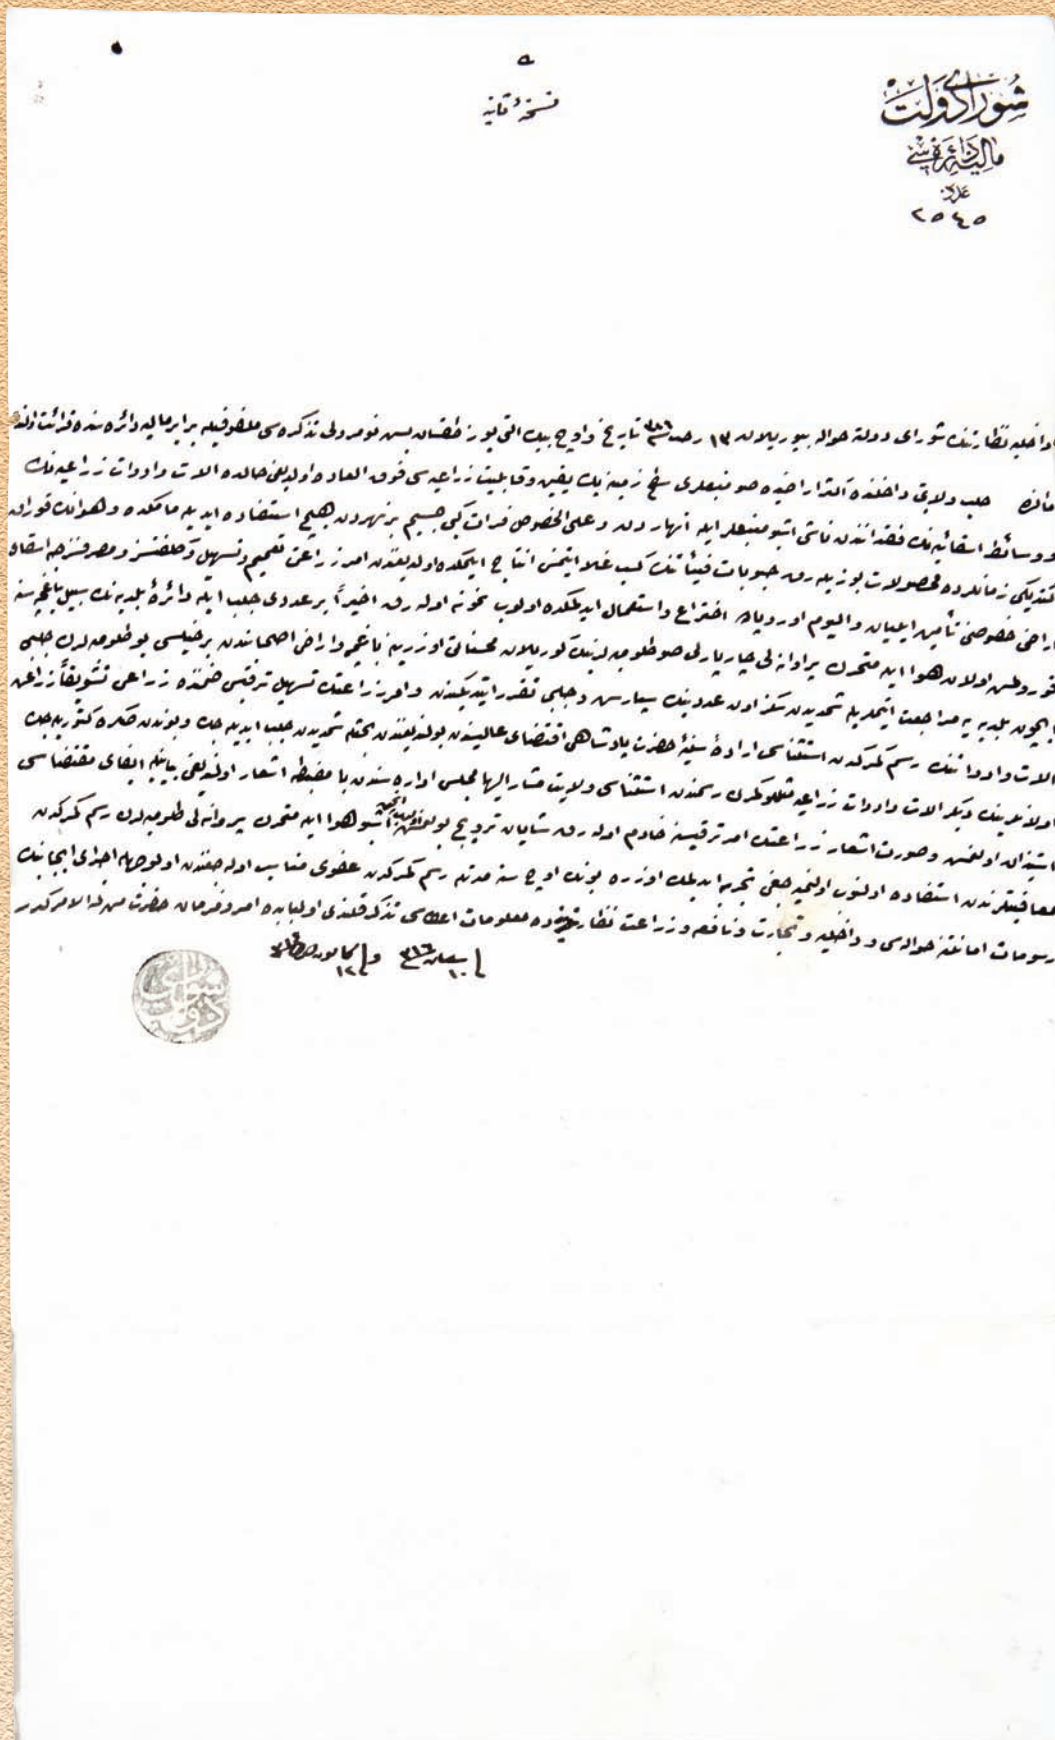 نسخهٔ ثانیه
شورای دولت
مالیه دائره سی
عدد
٢٥٤٥
داخلیه نظارتنك شورای دولته حواله بیوریلان ١٣ رجب تاریخ واوچ بیك التی یوز طقسان بش نومرولی تذکره سی ملفوفیله برابر مالیه دائره سنده قرائت اولندی
حلب ولایتی داخلنده اراضیده صو منبعلری سطح زمینه یك یقین وقابلیت زراعیه سی فوق العاده اولدیغی حالده الات وادوات زراعیه نك
ووسائط اسقائیه نك فقدانندن ناشی اشبو منبعلر ایله انهاردن وعلی الخصوص فرات کبی جسیم بر نهردن هیچ استفاده ایدیله مامکده وهوانك قوراق
کیتدیکی زمانلرده محصولات بوزیله رق حبوبات فیئاتنك کسب غلا ایتمسی انتاج ایتمکده اولدیغندن امر زراعتی تعمیم وتسهیل وکلفتسز ومصرفسزجه اسقای
اراضی خصوصنی تأمین ایلیان والیوم اوروپاده اختراع واستعمال ایدیلمکده اولوب نمونه اوله رق اخیراً بر عددی جلب ایله دائرهٔ بلدیه نك سبیل باغچه سنه
اولان هوا ایله متحرك پروانه لی چارپارلی صو طلومبه لرینك کوریلان محسناتی اوزرینه باغچه واراضی اصحابندن بر خیلیسی بو طلومبه لرك جلبی
ایچون بلدیه یه مراجعت ایتملریله شمدیدن سکز اون عددینك سپارش وجلبی تقرر ایتدیکندن وامر زراعتك تسهیل ترقیسی ضمننده زراعی تشویقاً زراعی
الات وادواتنك رسم کمرکدن استثناسی ارادهٔ سنیهٔ حضرت پادشاهی اقتضای عالیسندن بولندیغندن شمدیدن جلب ایدیله جك وبوندن صکره کتوریله جك
اولانلرینك دیکر الات وادوات زراعیه مثللو کمرك رسمندن استثناسی ولایت مشار الیها مجلس اداره سندن با مضبطه اشعار اولندیغی بیانیله ایفای مقتضاسی
استیذان اولنمش وصورت اشعار زراعتك امر ترقیسنه خادم اوله رق شایان ترویج بولنمش اشبو هوا ایله متحرك پروانه لی طلومبه لرك رسم کمرکدن
معافیتلرندن استفاده اولنوب اولنمیه جغی تجربه ایدیلمك اوزره بونك اوچ سنه مدتله رسم کمرکدن عفوی مناسب اوله جغندن اولوجهله اجرای ایجابنك
رسومات امانتنه حواله سی وداخلیه وتجارت ونافعه وزراعت نظارتلرینه ده معلومات اعطاسی تذکر قلندی اولبابده امر وفرمان حضرت من له الامرکدر